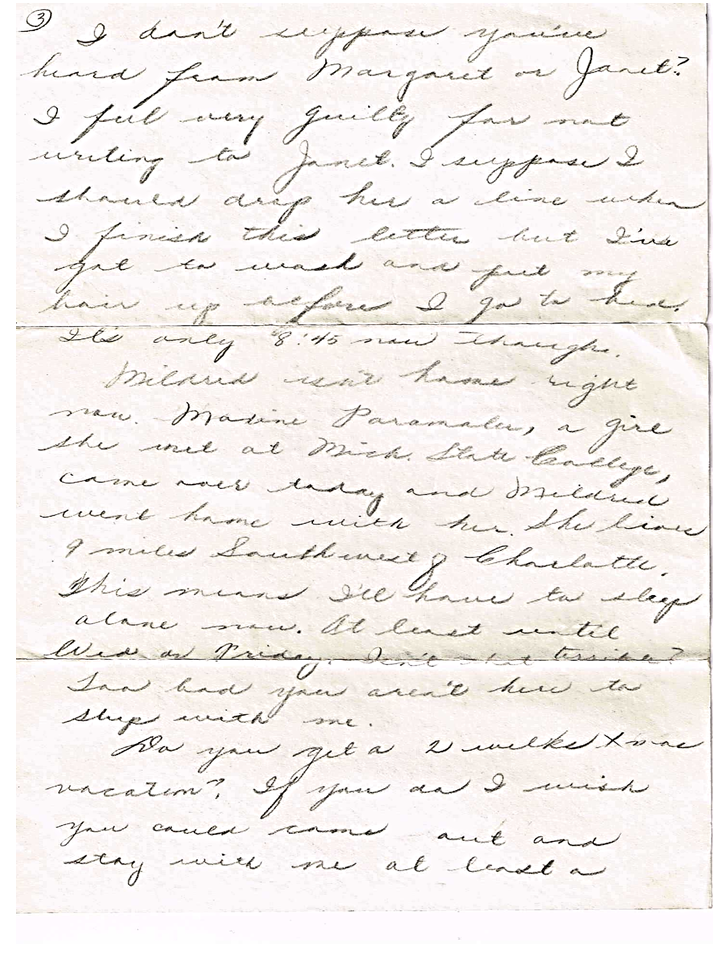 ③ I don't suppose you've
heard from Margaret or Janet?
I feel very guilty for not
writing to Janet. I suppose I
should drop her a line when
I finish this letter but I've
got to wash and put my
hair up before I go to bed.
It's only 8:45 now though.
Mildred isn't home right
now. Maxine Paramalee, a girl
she met at Mich. State College,
came over today and Mildred
went home with her. She lives
9 miles Southwest of Charlotte.
This means I'll have to sleep
alone now. At least until
Wed or Friday. Isn't that terrible?
Too bad you aren't here to
sleep with me.
Do you get a 2 weeks Xmas
vacation? If you do I wish
you could come out and
stay with me at least a